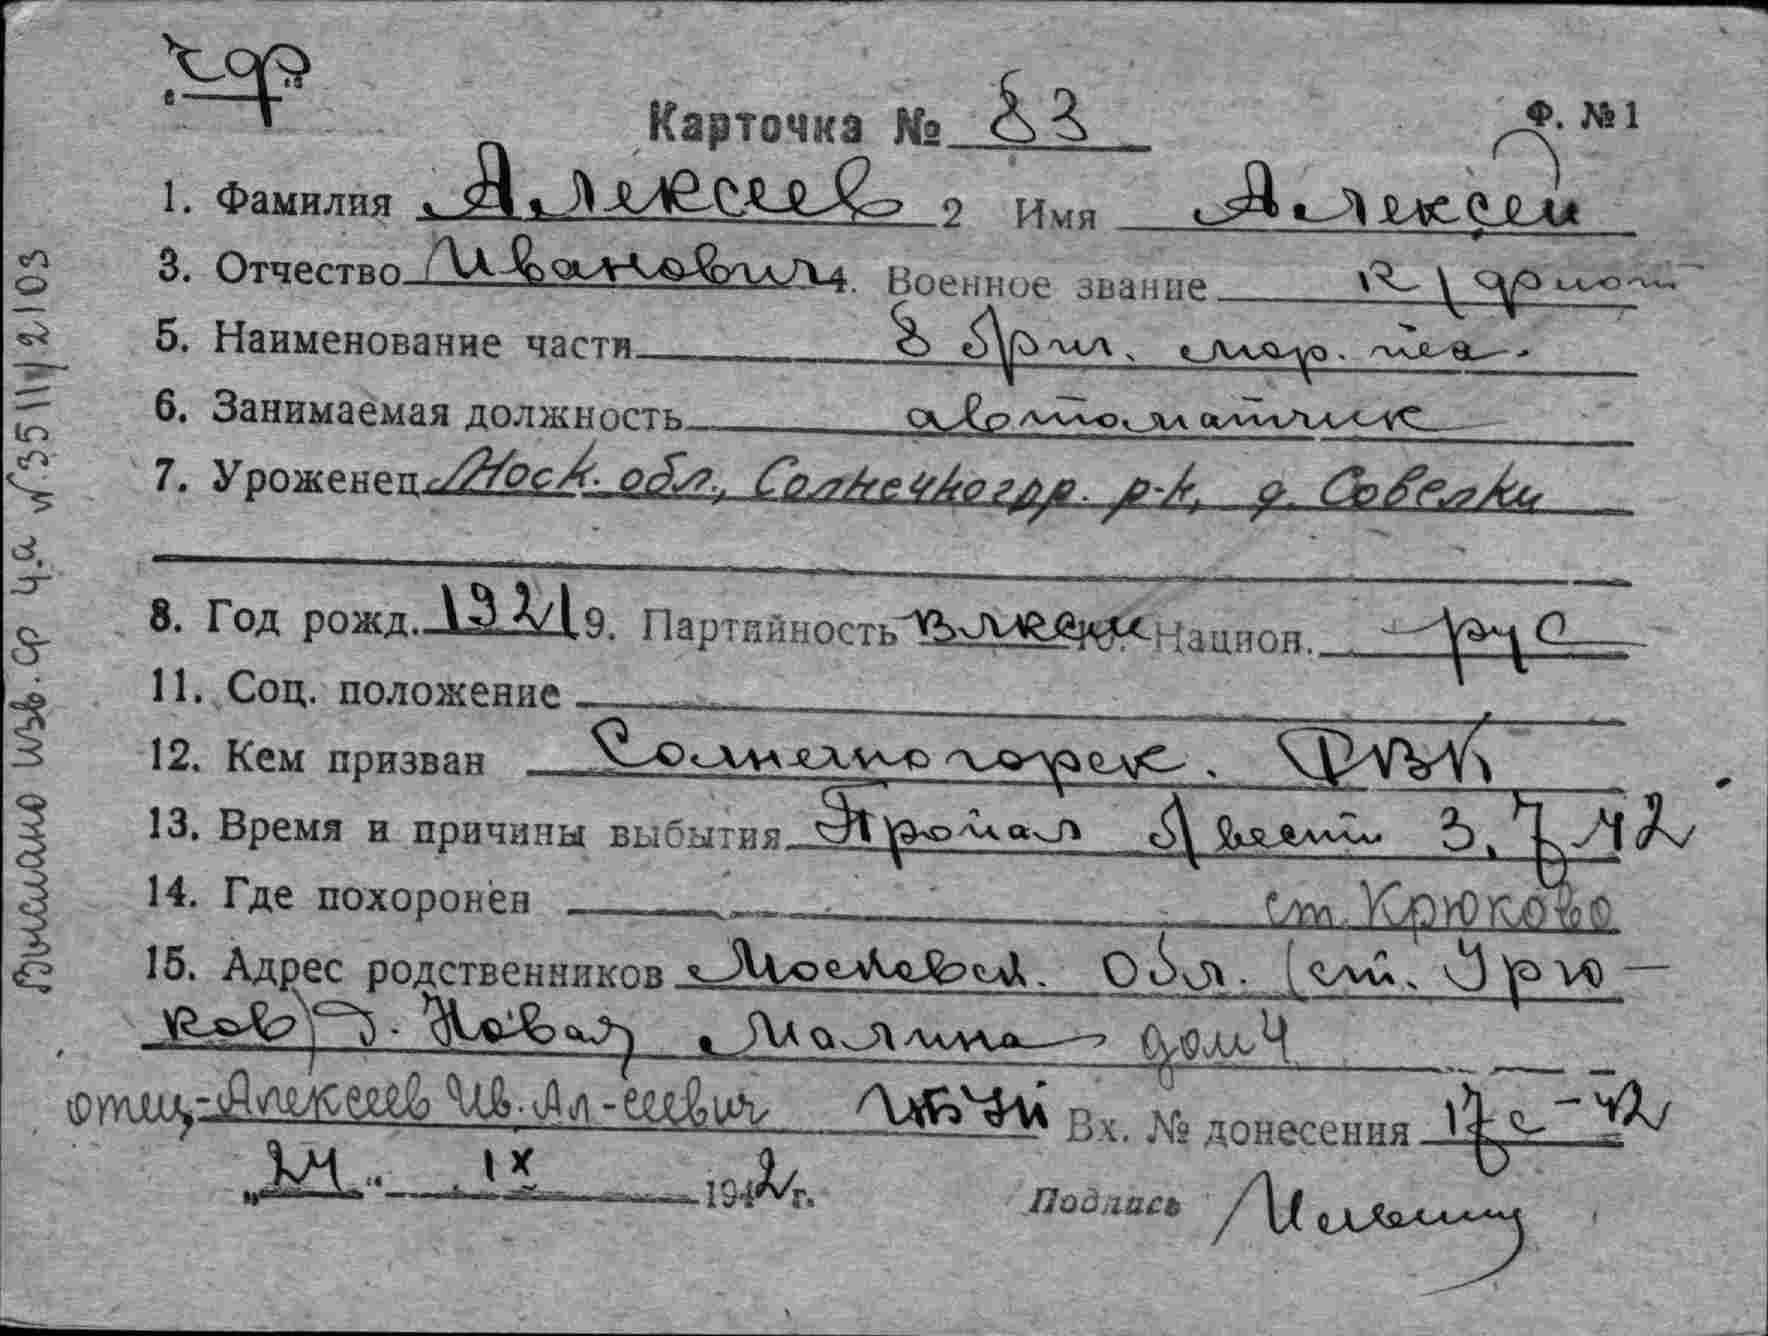 чф
Карточка № 83
Ф. №1
1. Фамилия Алексеев 2 Имя Алексей
3. Отчество Иванович 4. Военное звание к/флот
5. Наименование части 8 бриг. мор. пех.
6. Занимаемая должность автоматчик
7. Уроженец Моск. обл., Солнечногор. р-н, д. Совелки
8. Год рожд. 1921 9. Партийность ВЛКСМ 10. Национ. рус
11. Соц. положение
12. Кем призван Солнечногорск. РВК
13. Время и причины выбытия Пропал б/вести 3. 7 42
14. Где похоронен ст. Крюково
15. Адрес родственников Московск. обл. (ст. Крю-
ков) д. Новая Малина дом 4
отец-Алексеев Ив. Ал-еевич Вх. № донесения 17с-42
„24“ IX 1942 г.
Подпись
Выслано изв. ср ч.а № 35 2103